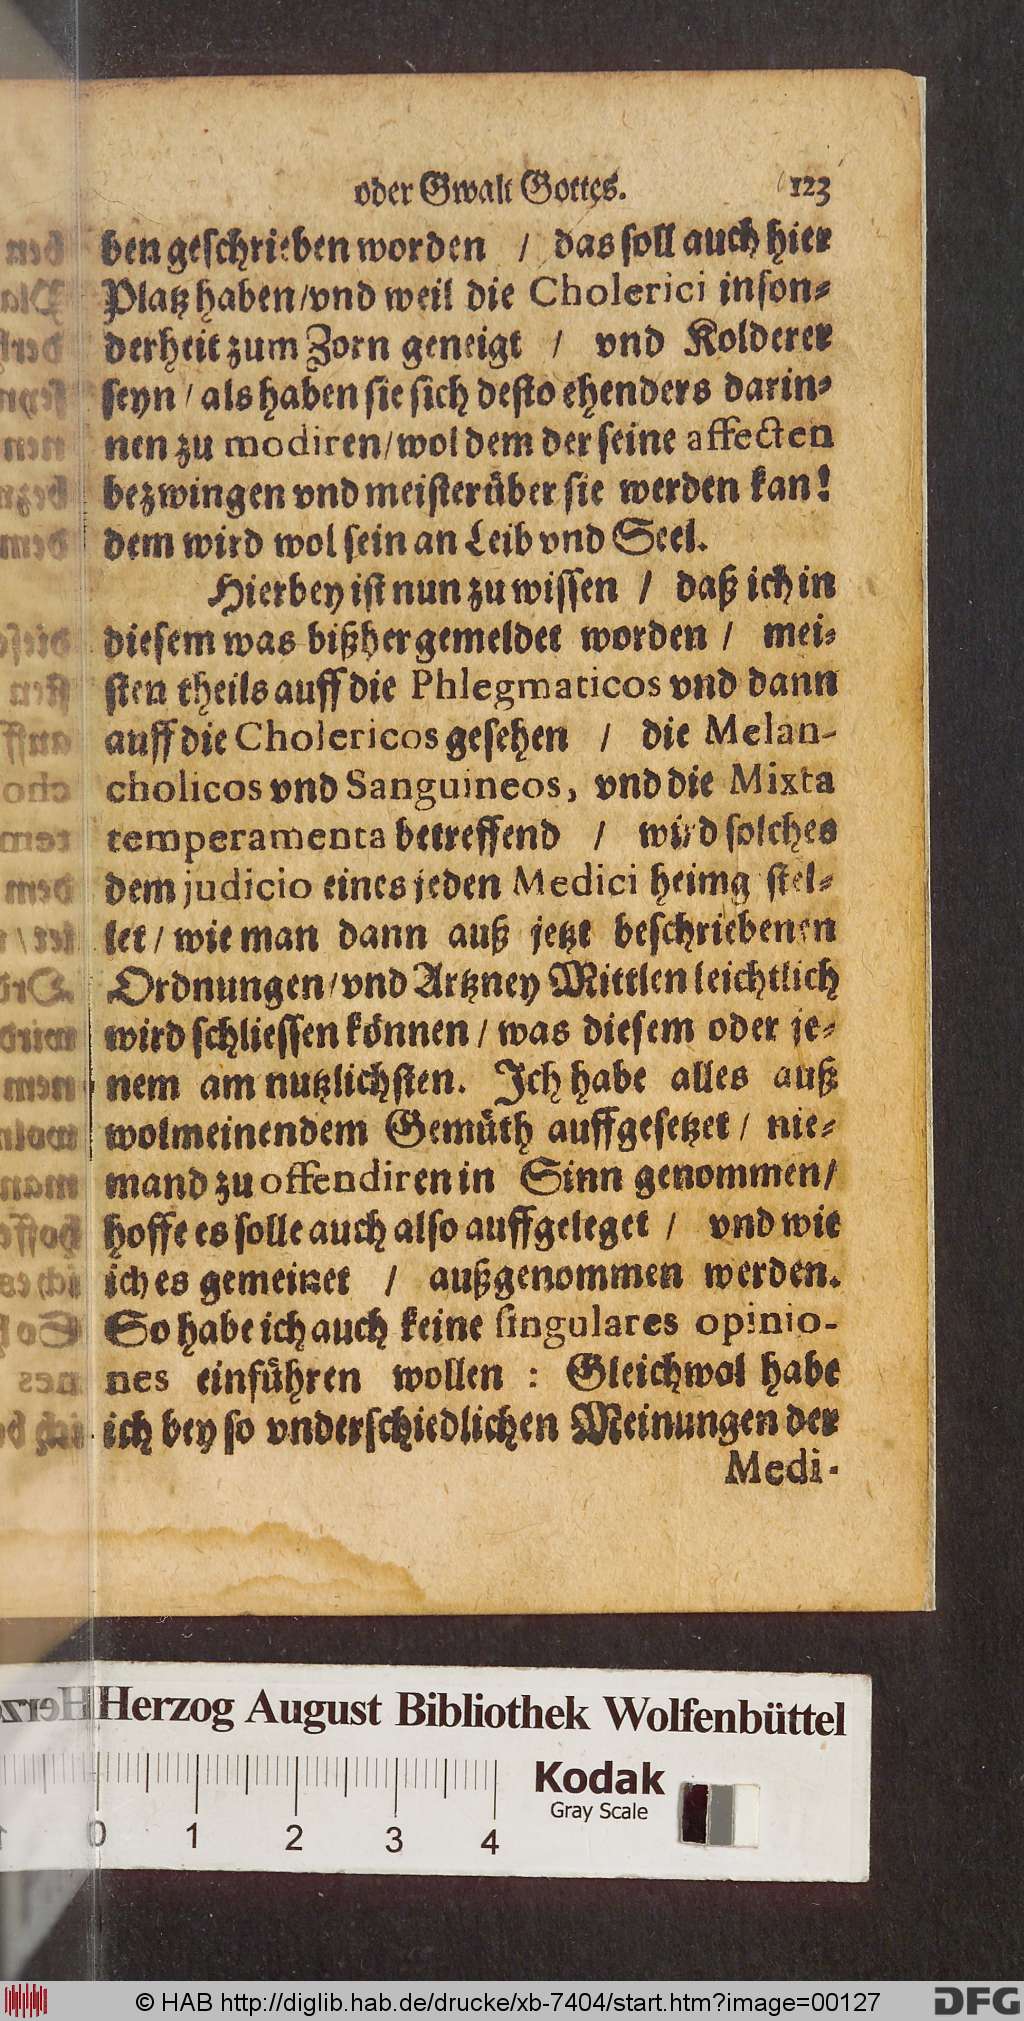 oder Gwalt Gottes. 123
ben geschrieben worden / das soll auch hier
Platz haben/vnd weil die Cholerici inson-
derheit zum Zorn geneigt / vnd Kolderer
seyn / als haben sie sich desto ehenders darin-
nen zu modiren/wol dem der seine affecten
bezwingen vnd meister über sie werden kan!
dem wird wol sein an Leib vnd Seel.
Hierbey ist nun zu wissen / daß ich in
diesem was bißher gemeldet worden / mei-
sten theils auff die Phlegmaticos vnd dann
auff die Cholericos gesehen / die Melan-
cholicos vnd Sanguineos, vnd die Mixta
temperamenta betreffend / wird solches
dem judicio eines jeden Medici heimg stel-
let / wie man dann auß jetzt beschriebenen
Ordnungen/vnd Artzney Mittlen leichtlich
wird schliessen können / was diesem oder je-
nem am nutzlichsten. Ich habe alles auß
wolmeinendem Gemüth auffgesetzet / nie-
mand zu offendiren in Sinn genommen/
hoffe es solle auch also auffgeleget / vnd wie
ich es gemeinet / außgenommen werden.
So habe ich auch keine singulares opinio-
nes einführen wollen : Gleichwol habe
ich bey so vnderschiedlichen Meinungen der
Medi-
Herzog August Bibliothek Wolfenbüttel
Kodak
Gray Scale
0 1 2 3 4
© HAB http://diglib.hab.de/drucke/xb-7404/start.htm?image=00127
DFG